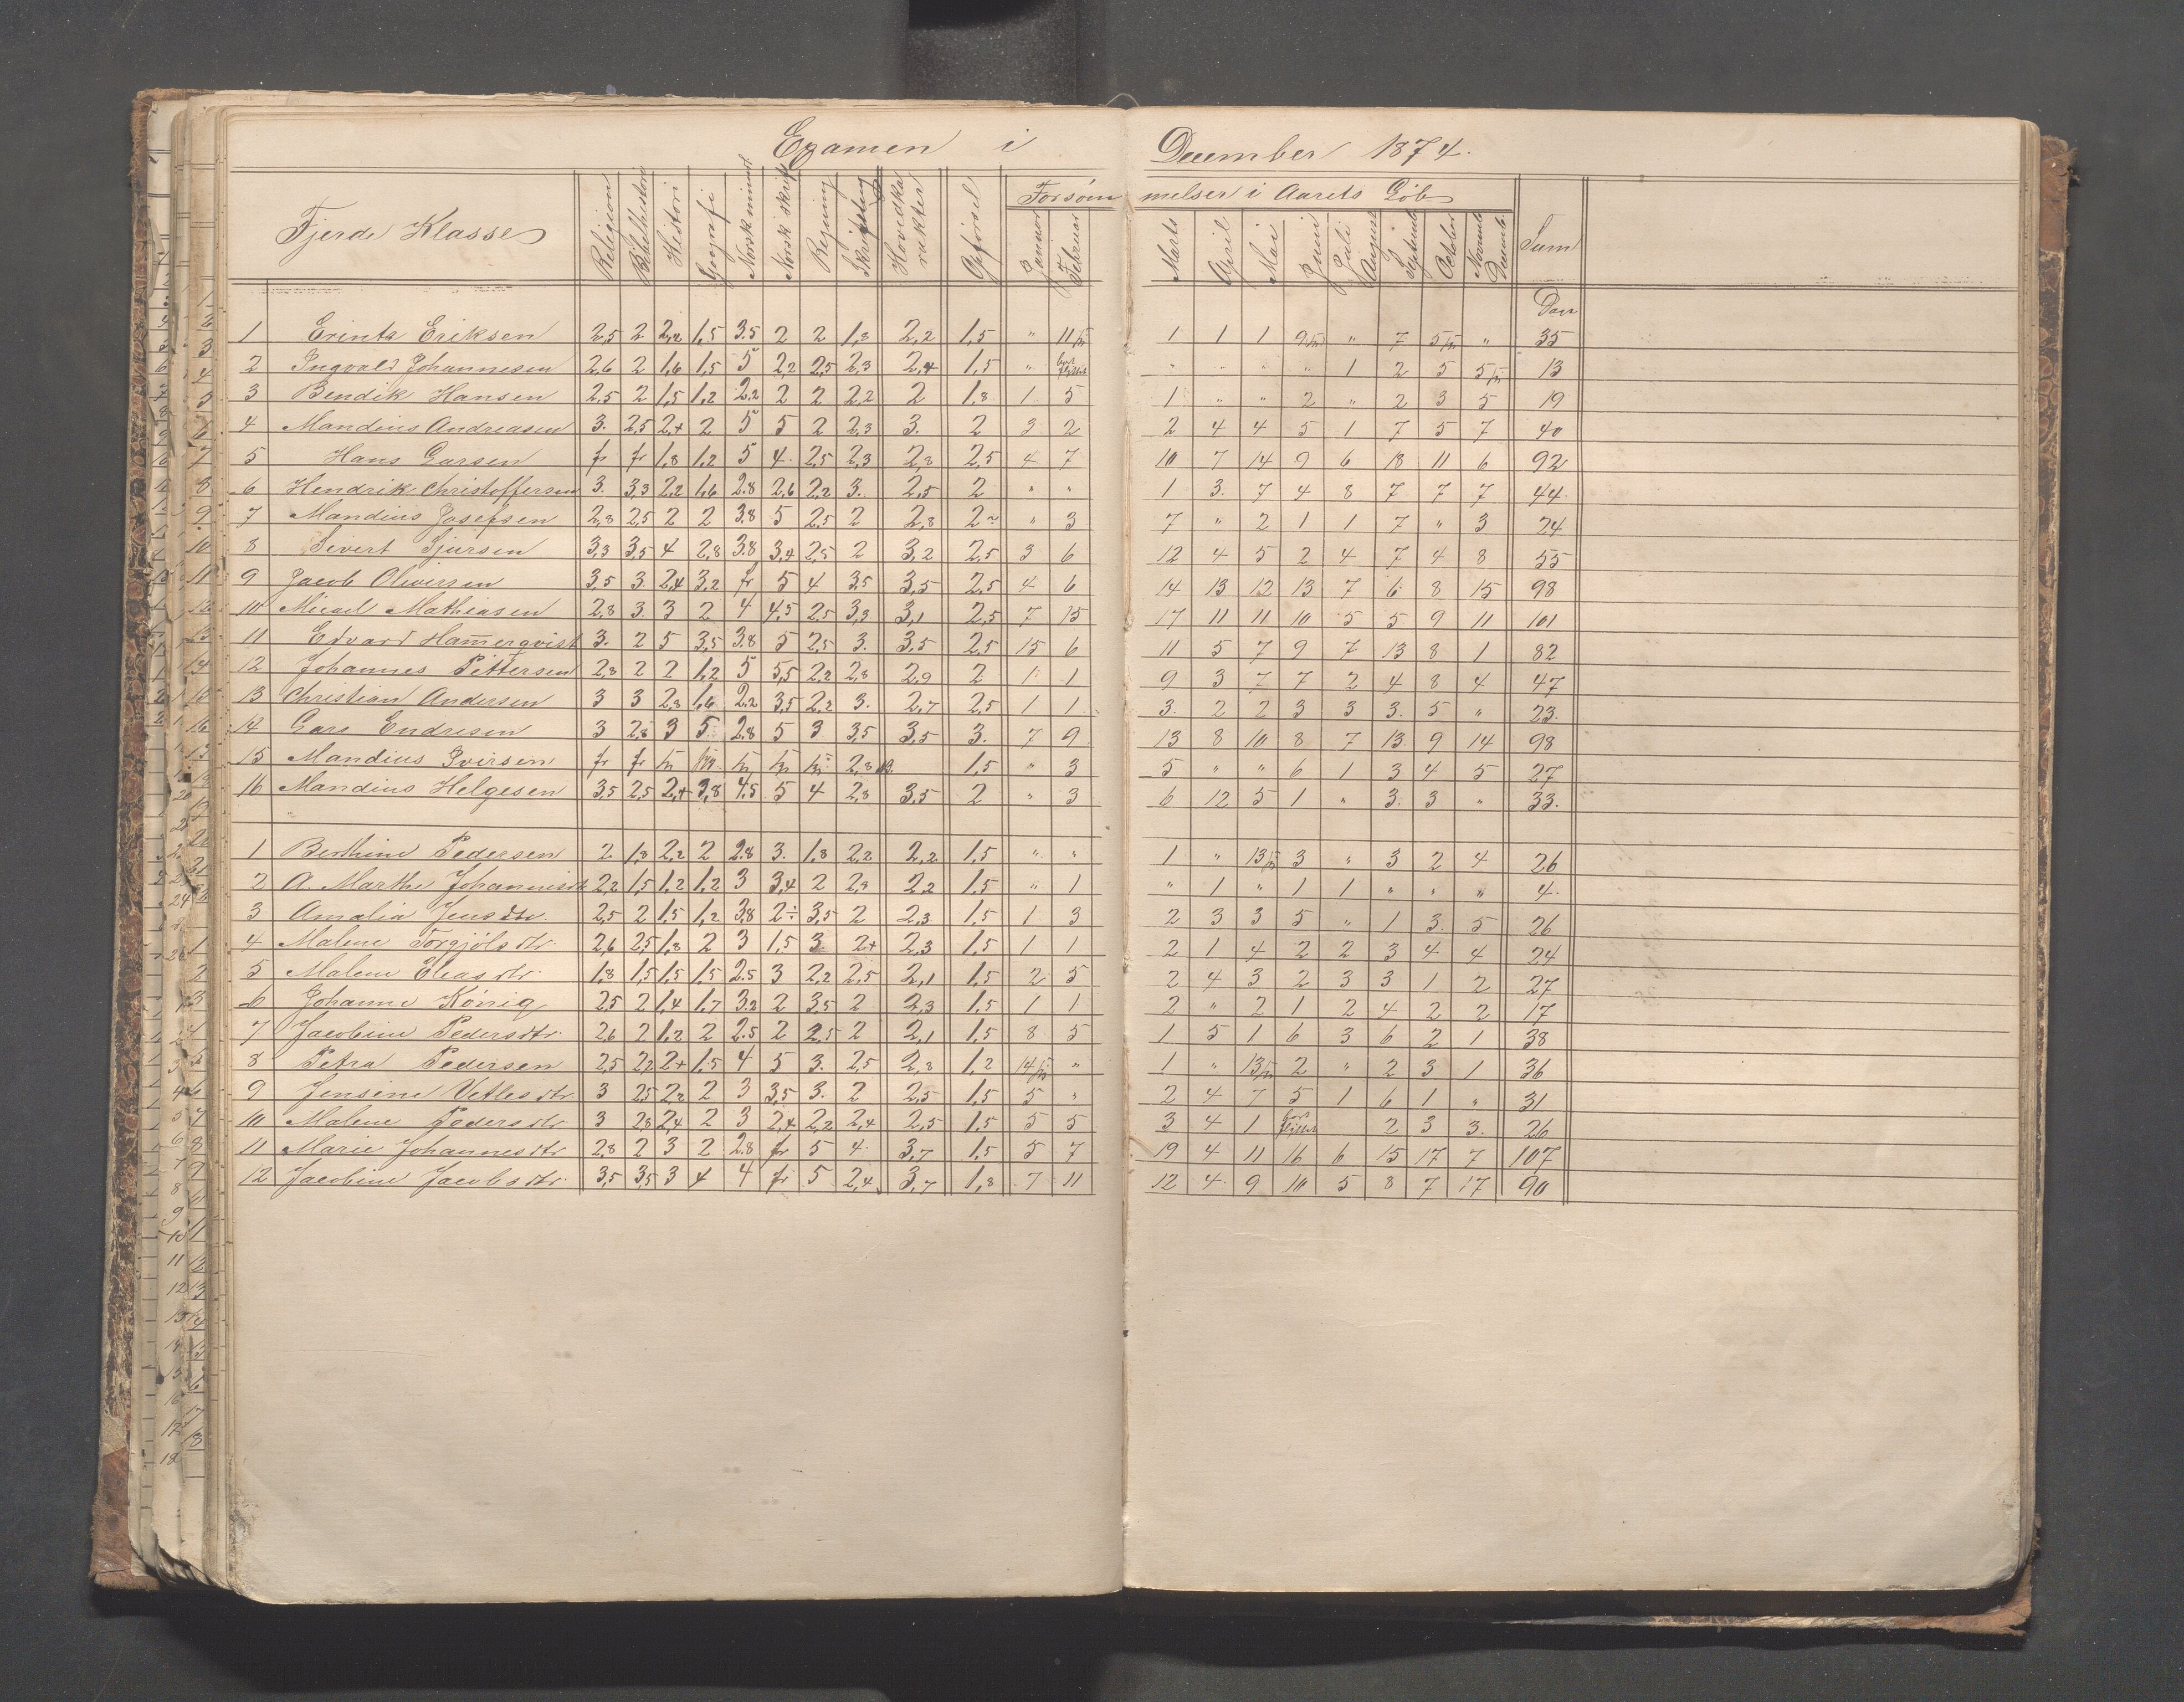 Examen i December 1874.
Fjerde Klasse Religion Bibelhistori Histori Geografi Norsk mundt Norsk skrift Regning Skrifning Hovedkarakter Opførsel Forsømmelser i Aarets Løb Sum
Januar Februar Marts April Mai Juni Juli August Septemb October Novemb. Decemb.
Dage
1 Erink Eriksen 2,5 2 2,2 1,5 3.5 2 2 1,8 2,2 1,5 " 11 1 1 1 9 " 7 5 " 35
2 Ingvald Johannesen 2,6 2 1,6 1,5 5 2,2 2,5 2,3 2,4 1,5 " bort flyttet " " " " 1 2 5 5 13
3 Bendik Hansen 2,5 2 1,5 1,2 2.2 2 2 2,2 2 1,8 1 5 1 " " 2 " 2 3 5 19
4 Mandius Andreasen 3. 2,5 2,+ 2 5 5 2 2,3 3. 2 3 2 2 4 4 5 1 7 5 7 40
5 Hans Larsen fr fr 1,8 1,2 5 4. 2,5 2,3 2,8 2,5 4 7 10 7 14 9 6 18 11 6 92
6 Hendrik Christoffersen 3. 3,3 2,2 1,6 2.8 2,6 2,2 3. 2,5 2 " " 1 3. 7 4 8 7 7 7 44.
7 Mandius Josefsen 2,8 2,5 2 2 3.8 5 2,5 2 2,8 2 " 3 7 " 2 1 1 7 " 3 24
8 Sivert Sjursen 3,3 3,5 4 2,8 3.8 3,4 2,5 2 3,2 2,5 3 6 12 4 5 2 4 7 4 8 55
9 Jacob Oliversen 3,5 3 2,4 3,2 fr 5 4 3,5 3,5 2,5 4 6 14 13 12 13 7 6 8 15 98
10 Micael Mathiasen 2,8 3. 3 2 4 4,5 2,5 3,3 3,1 2,5 7 15 17 11 11 10 5 5 9 11 101
11 Edvard Ham̄erqvist 3. 2 5 3,5 3.8 5 2,5 3. 3,5 2,5 15 6 11 5 7 9 7 13 8 1 82
12 Johannes Pettersen 2,8 2 2 1,2 5 5,5 2,2 2,8 2,9 2 1 1 9 3 7 7 2 4 8 4 47
13 Christian Andersen 3 3 2,8 1,6 2.2 3,5 2,2 3. 2,7 2,5 1 1 3. 2 2 3 3 3. 5 " 23.
14 Lars Endresen 3 2,8 3 5 2.8 5 3 3,5 3,5 3. 7 9 13 8 10 8 7 13. 9 14 98
15 Mandius Ivirsen fr fr 2,8 1,5 " 3 5 " " 6 1 3 4 5 27
16 Mandius Helgesen 3,5 2,5 2,+ 3,8 4.5 5 4 2,8 3,5 2 " 3 6 12 5 1 " 3. 3 " 33.
1 Berthine Pedersen 2 1,8 2,2 2 2.8 3. 1,8 2,2 2,2 1,5 " " 1 " 13 3 " 3 2 4 26
2 A. Marthe Johannisdtr 2,2 1,5 1,2 1,2 3 3,4 2 2,8 2,2 1,5 " 1 " 1 " 1 1 " " " 4.
3 Amalia Jensdtr. 2,5 2 1,5 1,2 3,8 2÷ 3,5 2 2,3 1,5 1 3 2 3 3 5 " 1 3. 5 26
4 Malene Torgjølsdtr. 2,6 2,5 1,8 2 3 1,5 3 2+ 2,3 1,5 1 1 2 1 4 2 2 3 4 4 24
5 Malene Eliasdtr. 1,8 1,5 1,5 1,5 2.5 3 2,2 2,5 2,1 1,5 2 5 2 4 3 2 3 3 1 2 27
6 Johanne König 2,5 2 1,4 1,7 3.2 2 3,5 2 2,3 1,5 1 1 2 " 2 1 2 4 2 2 17
7 Jacobine Pedersdtr. 2,6 2 1,2 2 2.5 2 2,5 2 2,1 1,5 8 5 1 5 1 6 3 6 2 1 38
8 Petra Pedersen 2,5 2,2 2+ 1,5 4 5 3. 2,5 2,8 1,2 14 " 1 " 13 2 " 2 3 1 36
9 Jensine Vetlesdtr 3 2,5 2,2 2 3 3,5 3. 2 2,5 1,5 5 " 2 4 7 5 1 6 1 " 31
10 Malene Pedersdtr 3 2,8 2,4 2 3 2,4 2,2 2,4 2,5 1,5 5 5 3 4 1 bort flyttet 2 3 3. 26
11 Marie Johannesdtr 2,8 2 3 2 2.8 fr 5 4. 3,7 1,5 5 7 19 4 11 16 6 15 17 7 107
12 Jacobine Jacobsdtr. 3,5 3,5 3 4 4 fr 5 2,4 3,7 1,8 7 11 12 4. 9 10 5 8 7 17 90